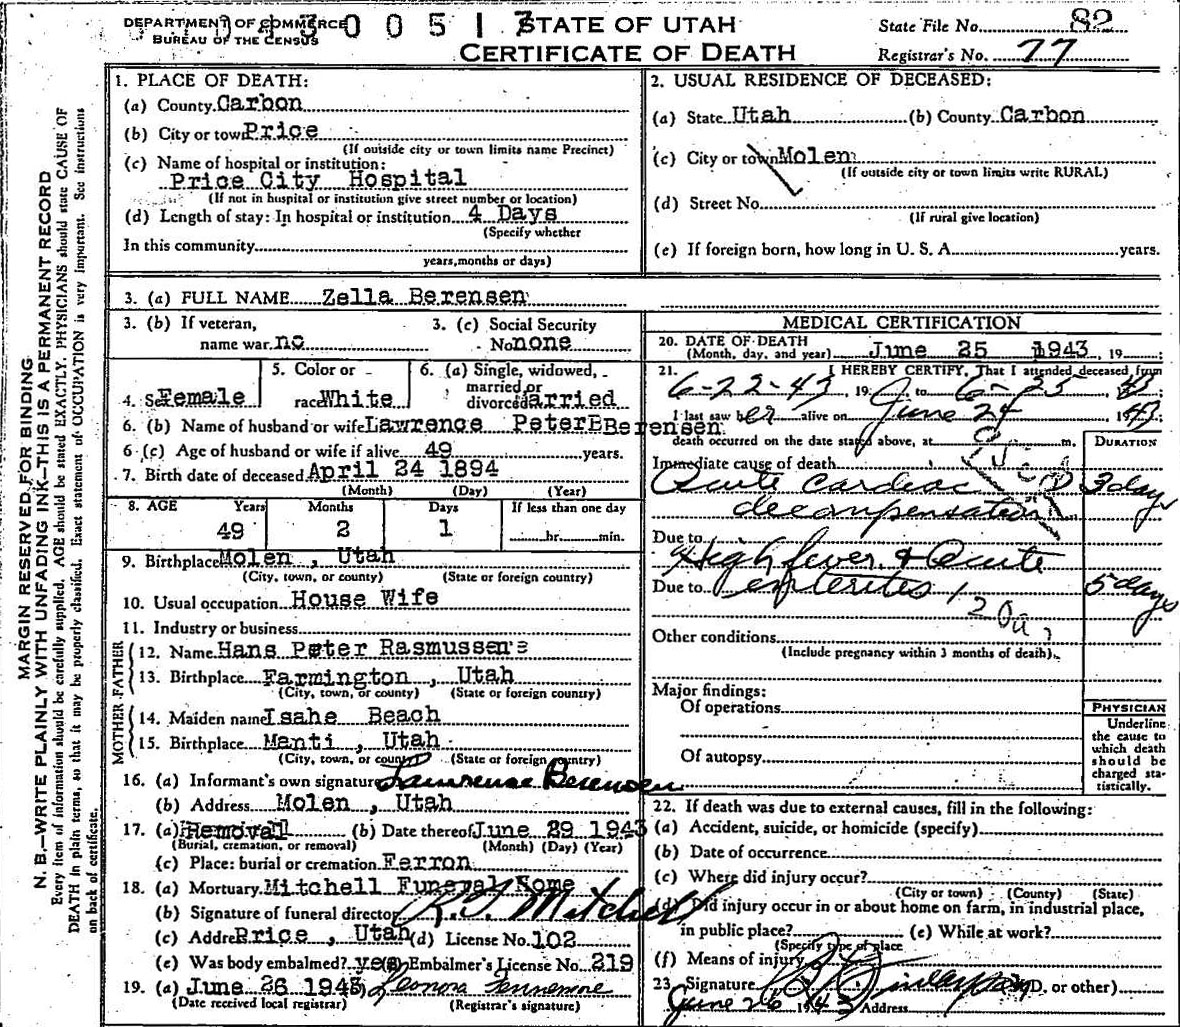 DEPARTMENT OF COMMERCE
BUREAU OF THE CENSUS
STATE OF UTAH
CERTIFICATE OF DEATH
State File No. 82
Registrar's No. 77
MARGIN RESERVED FOR BINDING
N. B.—WRITE PLAINLY WITH UNFADING INK—THIS IS A PERMANENT RECORD
Every item of information should be carefully supplied. AGE should be stated EXACTLY. PHYSICIANS should state CAUSE OF
DEATH in plain terms, so that it may be properly classified. Exact statement of OCCUPATION is very important. See instructions
on back of certificate.
1. PLACE OF DEATH:
(a) County Carbon
(b) City or town Price
(If outside city or town limits name Precinct)
(c) Name of hospital or institution:
Price City Hospital
(If not in hospital or institution give street number or location)
(d) Length of stay: In hospital or institution 4 Days
(Specify whether
In this community
years, months or days)
2. USUAL RESIDENCE OF DECEASED:
(a) State Utah (b) County Carbon
(c) City or town Molen
(If outside city or town limits write RURAL)
(d) Street No.
(If rural give location)
(e) If foreign born, how long in U. S. A. years.
3. (a) FULL NAME Zella Berensen
3. (b) If veteran,
name war no
3. (c) Social Security
No none
4. Sex Female
5. Color or
race White
6. (a) Single, widowed,
married or
divorced Married
6. (b) Name of husband or wife Lawrence Peter Berensen
6 (c) Age of husband or wife if alive 49 years.
7. Birth date of deceased April 24 1894
(Month) (Day) (Year)
8. AGE Years Months Days If less than one day
49 2 1 hr. min.
9. Birthplace Molen , Utah
(City, town, or county) (State or foreign country)
10. Usual occupation House Wife
11. Industry or business
FATHER
12. Name Hans Peter Rasmussen
13. Birthplace Farmington , Utah
(City, town, or county) (State or foreign country)
MOTHER
14. Maiden name Isahe Beach
15. Birthplace Manti , Utah
(City, town, or county) (State or foreign country)
16. (a) Informant's own signature Lawrence Berensen
(b) Address Molen , Utah
17. (a) Removal (b) Date thereof June 29 1943
(Burial, cremation, or removal) (Month) (Day) (Year)
(c) Place: burial or cremation Ferron
18. (a) Mortuary Mitchell Funeral Home
(b) Signature of funeral director R. G. Mitchell
(c) Addre Price , Utah (d) License No. 102
(e) Was body embalmed? yes Embalmer's License No. 219
19. (a) June 26 1943 Leonora Fennemore
(Date received local registrar) (Registrar's signature)
MEDICAL CERTIFICATION
20. DATE OF DEATH
(Month, day, and year) June 25 1943, 19
21. I HEREBY CERTIFY, That I attended deceased from
6-22-43, 19 to 6-25 43
I last saw her alive on June 24 1943
death occurred on the date stated above, at m.
DURATION
Immediate cause of death
Acute Cardiac 3 days
decompensation
Due to
High fever & Acute
Due to enteritis 5 days
Other conditions
(Include pregnancy within 3 months of death)
Major findings:
Of operations
Of autopsy
PHYSICIAN
Underline
the cause to
which death
should be
charged sta-
tistically.
22. If death was due to external causes, fill in the following:
(a) Accident, suicide, or homicide (specify)
(b) Date of occurrence
(c) Where did injury occur?
(City or town) (County) (State)
(d) Did injury occur in or about home on farm, in industrial place,
in public place? (e) While at work?
(Specify type of place
(f) Means of injury
23. Signature (M. D. or other)
June 26 1943 Address